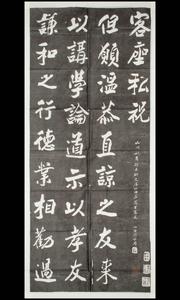 客座私祝
但願溫恭直諒之友來
以講學論道示以孝友
謙和之行德業相勸過